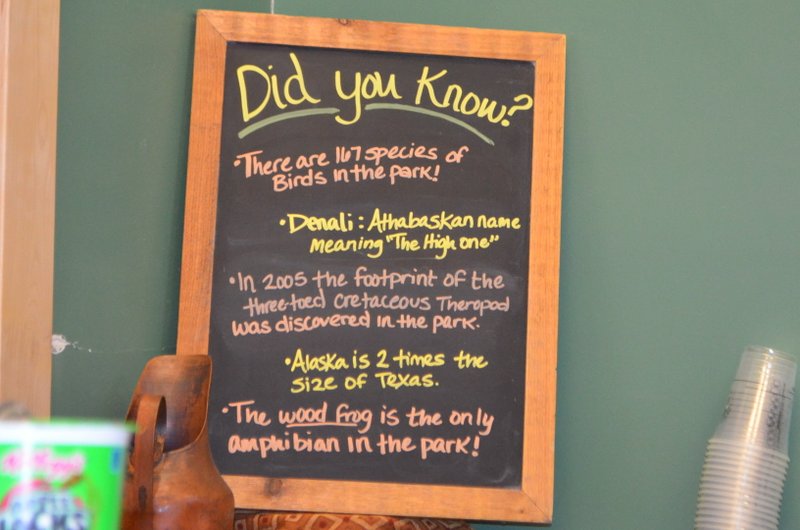 Did you Know?
• There are 167 species of
Birds in the park!
• Denali: Athabaskan name
meaning "The High one"
• In 2005 the footprint of the
three-toed Cretaceous Theropod
was discovered in the park.
• Alaska is 2 times the
size of Texas.
• The wood frog is the only
amphibian in the park!